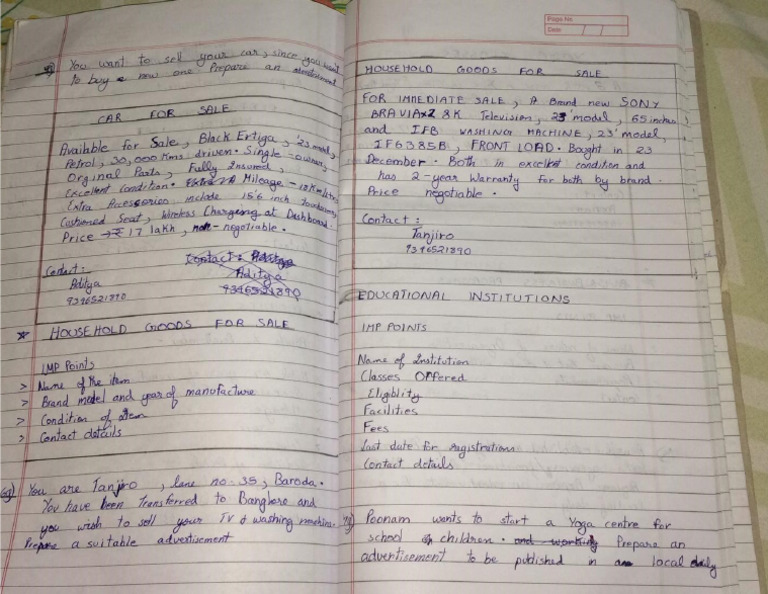 You want to sell your car, since you want
to buy a new one. Prepare an advertisement
CAR FOR SALE
Available for Sale, Black Ertiga, '23 model,
Petrol, 30,000 Kms driven. Single - owner,
Orginal Parts, Fully Insured,
Excellent Condition. Mileage - 18 Km/litre
Extra Accessories include 15.6 inch touchscreen,
Cushioned Seat, Wireless Chargeing at Dashboard.
Price → ₹ 17 lakh, non-negotiable.
Contact: Aditya
Contact:
Aditya
Aditya
9346521390
9346521390
HOUSEHOLD GOODS FOR SALE
IMP Points
> Name of the item
> Brand model and year of manufacture
> Condition of item
> Contact details
eg) You are Tanjiro, lane no. 35, Baroda.
You have been Transferred to Banglore and
you wish to sell your TV & washing machine.
Prepare a suitable advertisement
Page No
Date
HOUSEHOLD GOODS FOR SALE
FOR IMMEDIATE SALE, A Brand new SONY
BRAVIA 8K Television, 23' model, 65 inches
and IFB WASHING MACHINE, 23' model,
IF6385B, FRONT LOAD. Bought in 23
December. Both in excellent condition and
has 2-year Warranty for both by brand.
Price negotiable.
Contact:
Tanjiro
9346521390
EDUCATIONAL INSTITUTIONS
IMP POINTS
Name of Institution
Classes Offered
Eligblity
Facilities
Fees
last date for registration
Contact details
Poonam wants to start a Yoga centre for
school children. and working Prepare an
advertisement to be published in a local daily